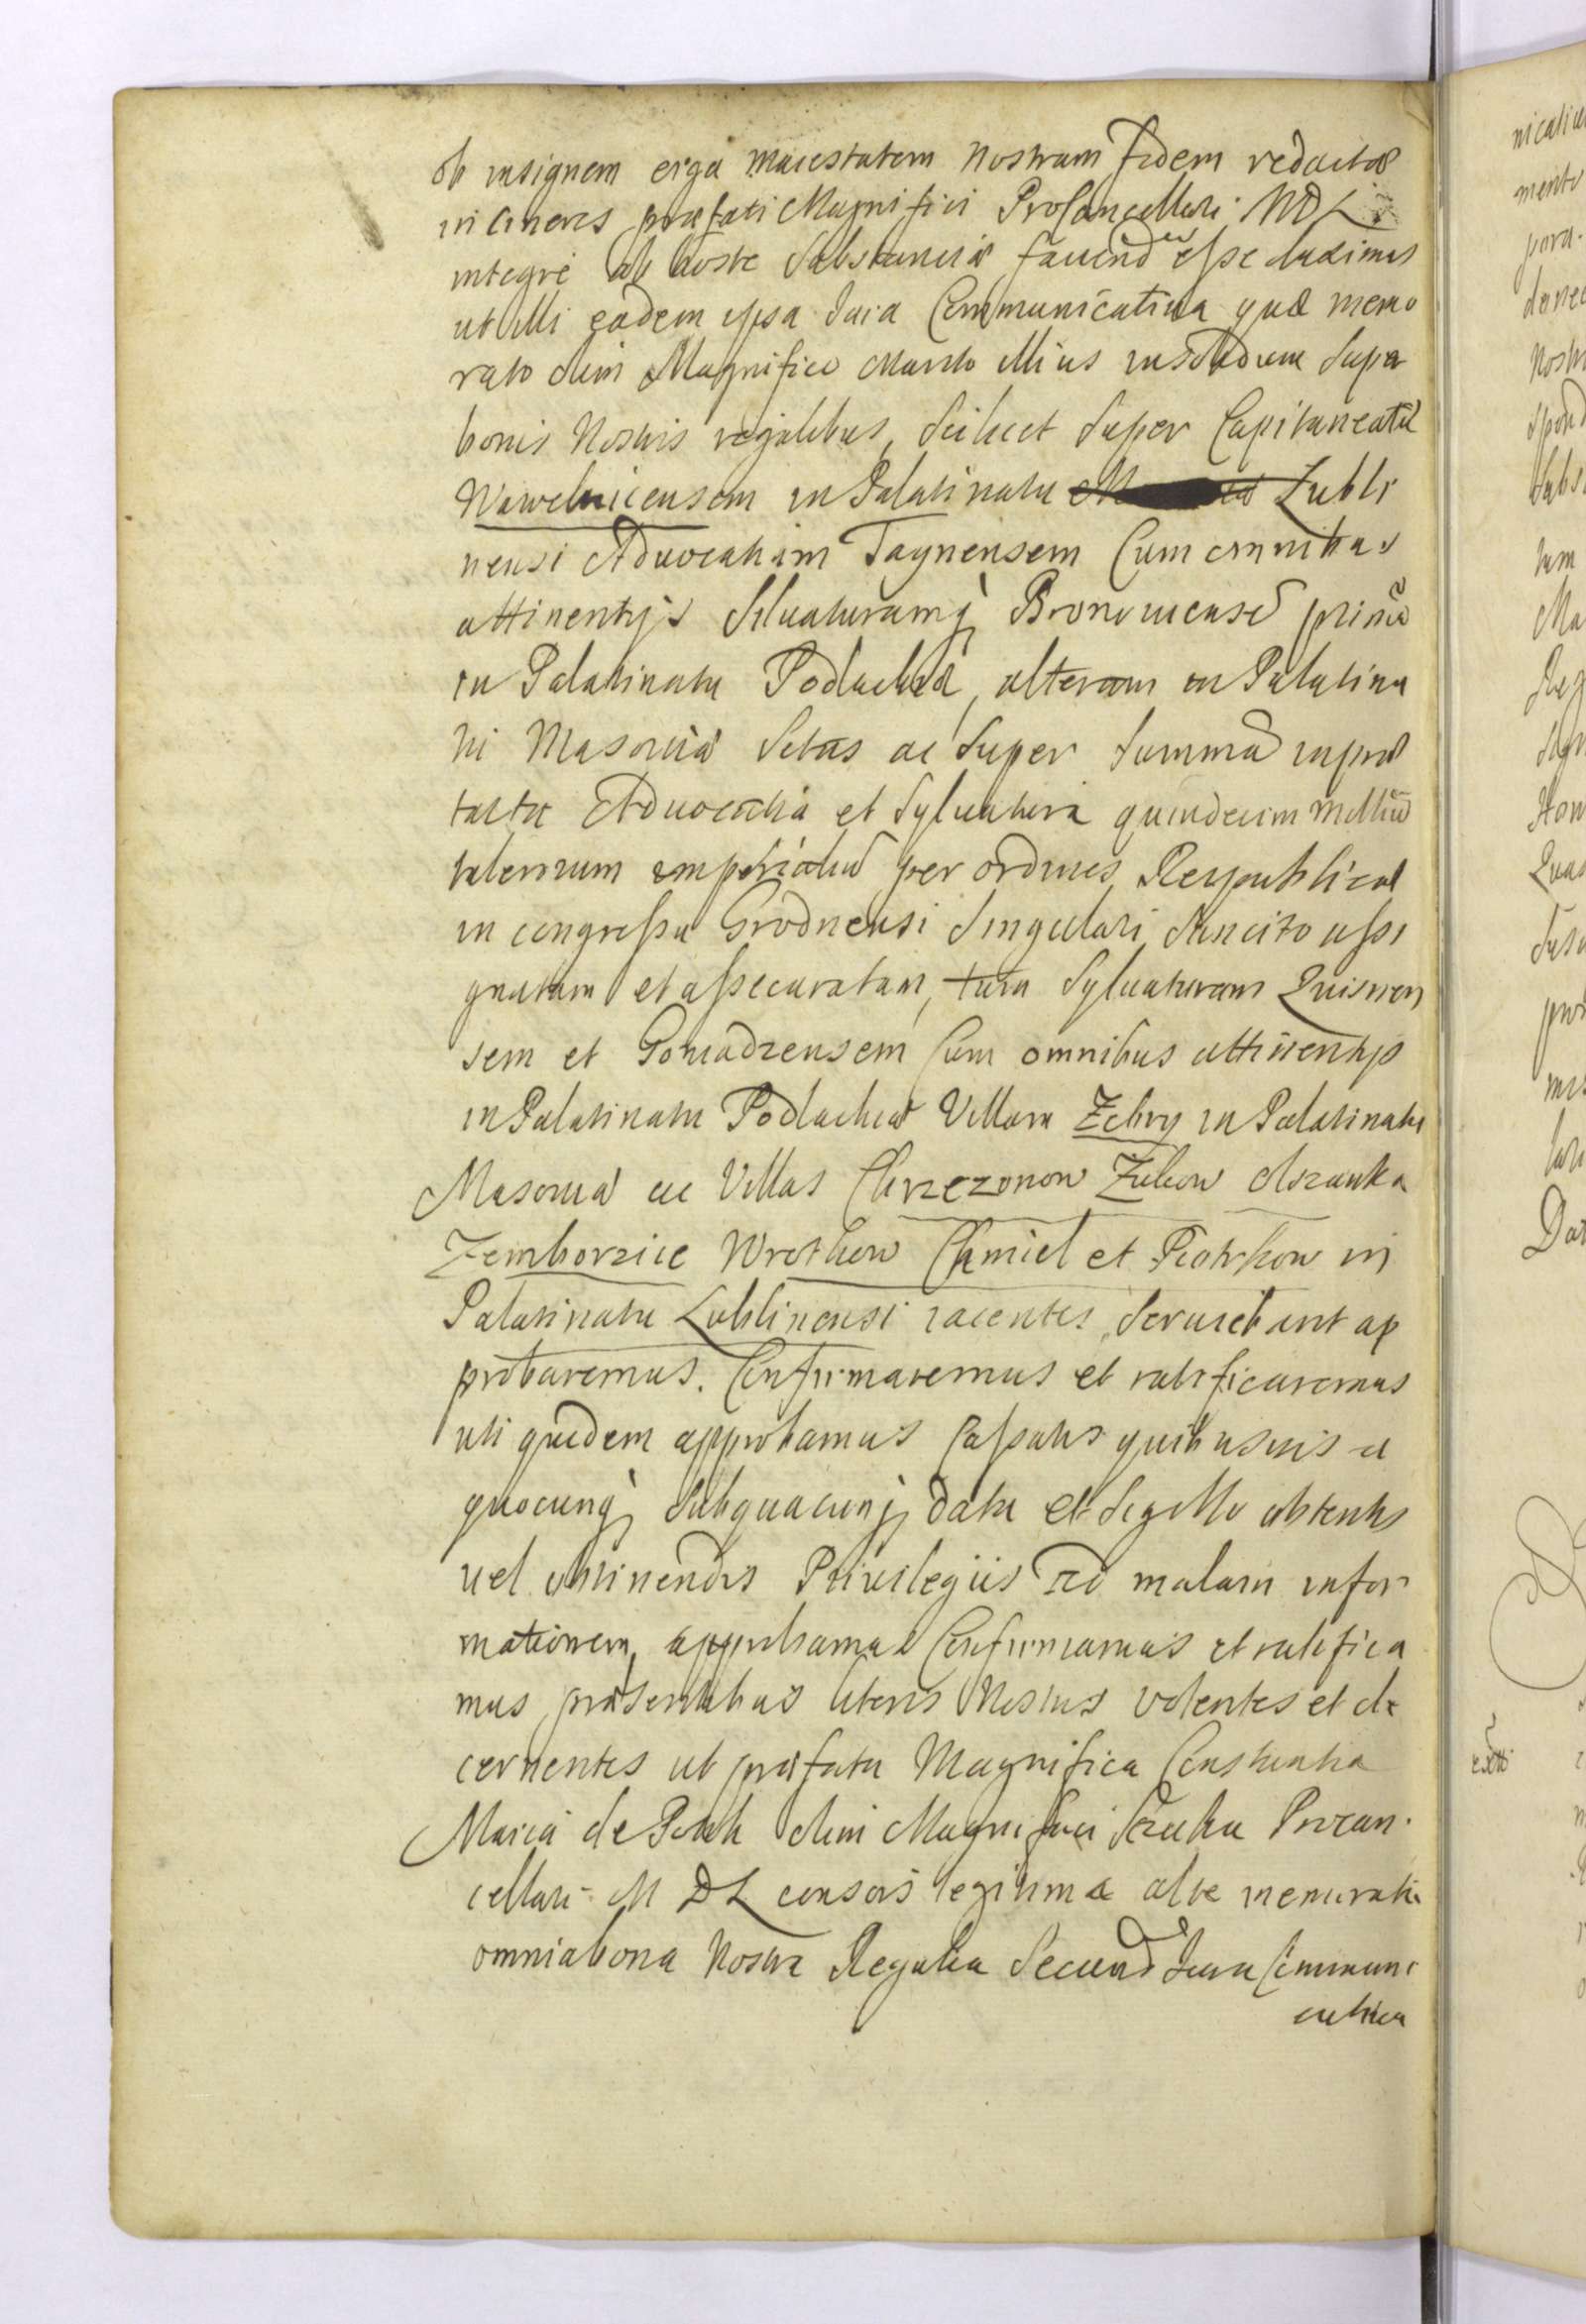 ob insignem erga maiestatem nostram fidem redactae
in cineres praefati Magnifici ProCancellarii MDL.
integre ab hoste Substantiae fauendū esse duximus
ut illi eadem ipsa Iura Communicatiua quae memo
rato olim Magnifico Marito illius insolidum Super
bonis Nostris regalibus, Scilicet Super Capitaneatū
Wawelnicensem in Palatinatu Lubli
nensi Advocatiam Taynensem Cum omnibus
attinentijs Siluaturamq Bronouiensē primā
in Palatinatu Podlachiae, alteram in Palatina
tu Masouiae Sitas ac Super Summā in prae
tactae Aduocatia et Syluatura quindecim milliū
talerorum imperialiū per ordines Reipublicae
in congressu Grodnensi Singulari Sancito assi
gnatam et assecuratam, tum Syluaturam
sem et Goniadzensem Cum omnibus attinentijs
in Palatinatu Podlachiae Villam Zebry in Palatinatu
Masouiae ac Villas Chrzczonow Zukow Olszanka
Zemborzice Wrotkow Chmiel et Piotrkow in
Palatinatu Lublinensi iacentes, Seruiebant ap
probaremus. Confirmaremus et ratificaremus
uti quidem approbamus Cassatis quibusuis a
quocunq Subquacunq data et Sigillo obtentis
uel obtinendis Priuilegiis ad malam infor
mationem, approbamus Confirmamus et ratifica
mus praesentibus literis Nostris volentes et de
cernentes ut praefata Magnifica Constantia
Maria de olim Magnifici Szczuka Procan.
cellarii M DL consors legitima alte memorati
omnia bona Nostra Regalia Secundū Iura Communi
catiua